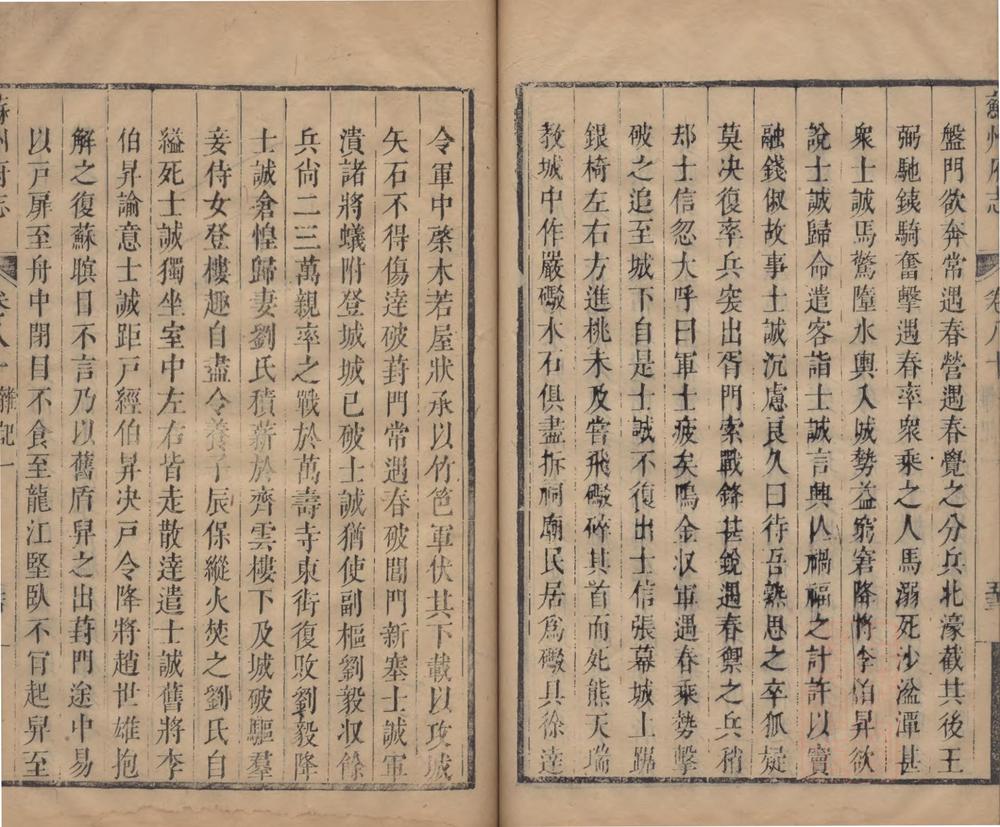 蘇州府志
卷八十
五三
盤門欲奔常遇春營遇春覺之分兵北濠截其後王
弼馳鐵騎奮擊遇春率衆乘之人馬溺死沙湓潭甚
衆士誠馬驚墮水輿入城勢益窮窘降將李伯昇欲
說士誠歸命遣客詣士誠言興以禍福之計許以竇
融錢俶故事士誠沉慮良久曰待吾熟思之卒狐疑
莫决復率兵突出胥門索戰鋒甚銳遇春禦之兵稍
却士信忽大呼曰軍士疲矣鳴金収軍遇春乘勢擊
破之追至城下自是士誠不復出士信張幕城上踞
銀椅左右方進桃未及嘗飛礮碎其首而死熊天瑞
教城中作嚴礮木石俱盡拆祠廟民居爲礮具徐達
令軍中蔡木若屋狀承以竹笆軍伏其下載以攻城
矢石不得傷達破葑門常遇春破閶門新塞士誠軍
潰諸將蟻附登城城已破士誠猶使副樞劉毅収餘
兵尙二三萬親率之戰於萬壽寺東街復敗劉毅降
士誠倉惶歸妻劉氏積薪於齊雲樓下及城破驅羣
妾侍女登樓趣自盡令養子辰保縱火焚之劉氏自
縊死士誠獨坐室中左右皆走散達遣士誠舊將李
伯昇諭意士誠距戶經伯昇决戶令降將趙世雄抱
解之復蘇瞋目不言乃以舊盾舁之出葑門途中易
以戸扉至舟中閉目不食至龍江堅臥不肎起舁至
蘇州府志
卷八十 雜記一